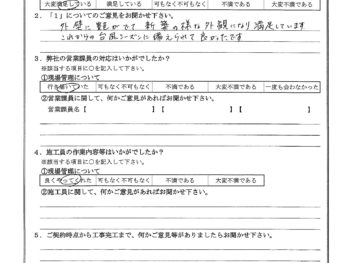 大変満足している 満足している 可もなく不可もなく 不満である 大変不満である
2．「1」についてのご意見をお聞かせ下さい。
外壁に艶がでて 新築の様な外観になり満足しています
これからの台風シーズンに備えられて良かったです
3．弊社の営業課員の対応はいかがでしたか？
※該当する項目に○を記入して下さい。
①現場管理について
行き届いていた 可もなく不可もなく 不満である 大変不満である 一度も会わなかった
②営業課員に関して、何かご意見があればお聞かせ下さい。
営業課員名【 】【 】【 】
4．施工員の作業内容等はいかがでしたか？
※該当する項目に○を記入して下さい。
①現場管理について
良くやってくれた 可もなく不可もなく 不満である 大変不満である
②施工員に関して、何かご意見があればお聞かせ下さい。
5．ご契約時点から工事完工まで、何かご意見等がありましたらお聞かせ下さい。